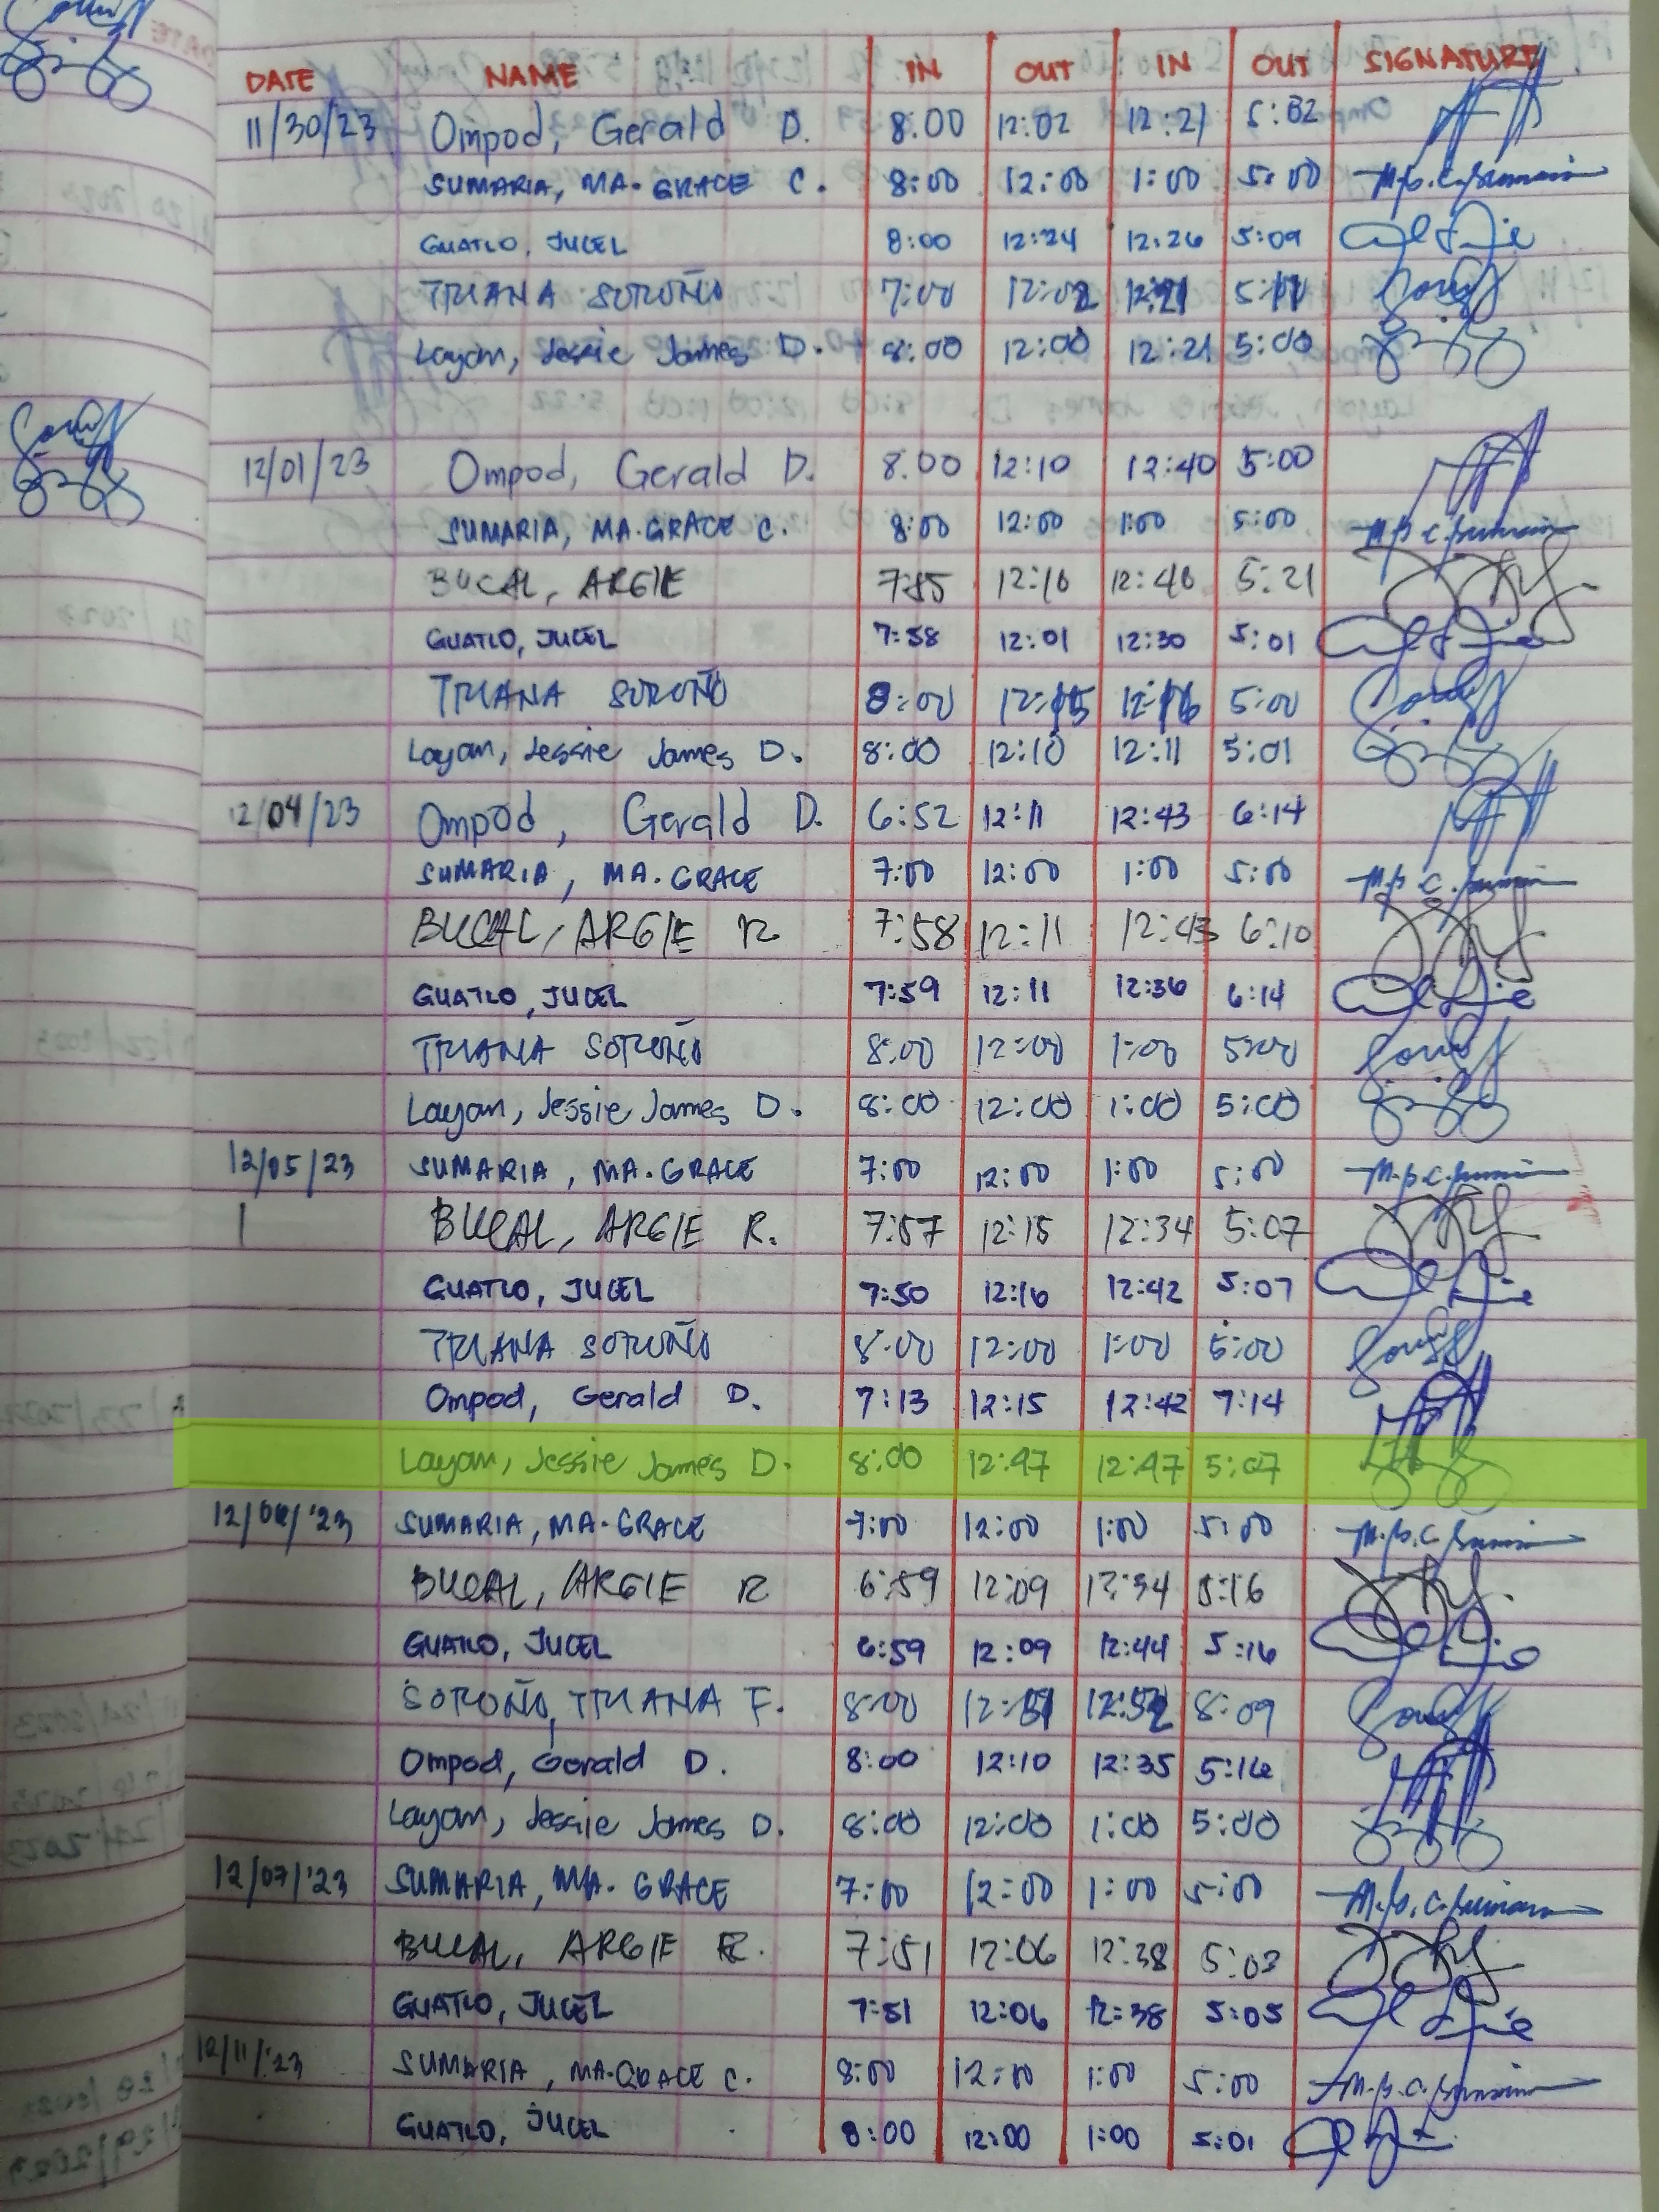 DATE NAME IN OUT IN OUT SIGNATURE
11/30/23 Ompod, Gerald D. 8:00 12:02 12:21 5:02
SUMARIA, MA. GRACE C. 8:00 12:00 1:00 5:00
GUATLO, JUCEL 8:00 12:24 12:26 5:09
TRIANA SOROÑO 7:00 12:02 12:21 5:11
Layan, Jessie James D. 8:00 12:00 12:21 5:00
12/01/23 Ompod, Gerald D. 8:00 12:10 12:40 5:00
SUMARIA, MA. GRACE C. 8:00 12:00 1:00 5:00
BUCAL, ARGIE 12:16 12:46 5:21
GUATLO, JUCEL 7:58 12:01 12:30 5:01
TRIANA SOROÑO 8:00 12:15 12:16 5:00
Layan, Jessie James D. 8:00 12:10 12:11 5:01
12/04/23 Ompod, Gerald D. 6:52 12:11 12:43 6:14
SUMARIA, MA. GRACE 7:00 12:00 1:00 5:00
BUCAL, ARGIE R 7:58 12:11 12:43 6:10
GUATLO, JUCEL 7:59 12:11 12:36 6:14
TRIANA SOROÑO 8:00 12:00 1:00 5:00
Layan, Jessie James D. 8:00 12:00 1:00 5:00
12/05/23 SUMARIA, MA. GRACE 7:00 12:00 1:00 5:00
BUCAL, ARGIE R. 7:57 12:15 12:34 5:07
GUATLO, JUCEL 7:50 12:16 12:42 5:07
TRIANA SOROÑO 8:00 12:00 1:00 5:00
Ompod, Gerald D. 7:13 12:15 12:42 7:14
Layan, Jessie James D. 8:00 12:47 12:47 5:07
12/06/'23 SUMARIA, MA. GRACE 7:00 12:00 1:00 5:00
BUCAL, ARGIE R 6:59 12:09 12:34 5:16
GUATLO, JUCEL 6:59 12:09 12:44 5:16
SOROÑO, TRIANA F. 8:00 12:51 12:52 8:09
Ompod, Gerald D. 8:00 12:10 12:35 5:16
Layan, Jessie James D. 8:00 12:00 1:00 5:00
12/07/'23 SUMARIA, MA. GRACE 7:00 12:00 1:00 5:00
BUCAL, ARGIE R. 7:51 12:06 12:38 5:03
GUATLO, JUCEL 7:51 12:06 12:38 5:05
12/11/'23 SUMARIA, MA. GRACE C. 8:00 12:00 1:00 5:00
GUATLO, JUCEL 8:00 12:00 1:00 5:01